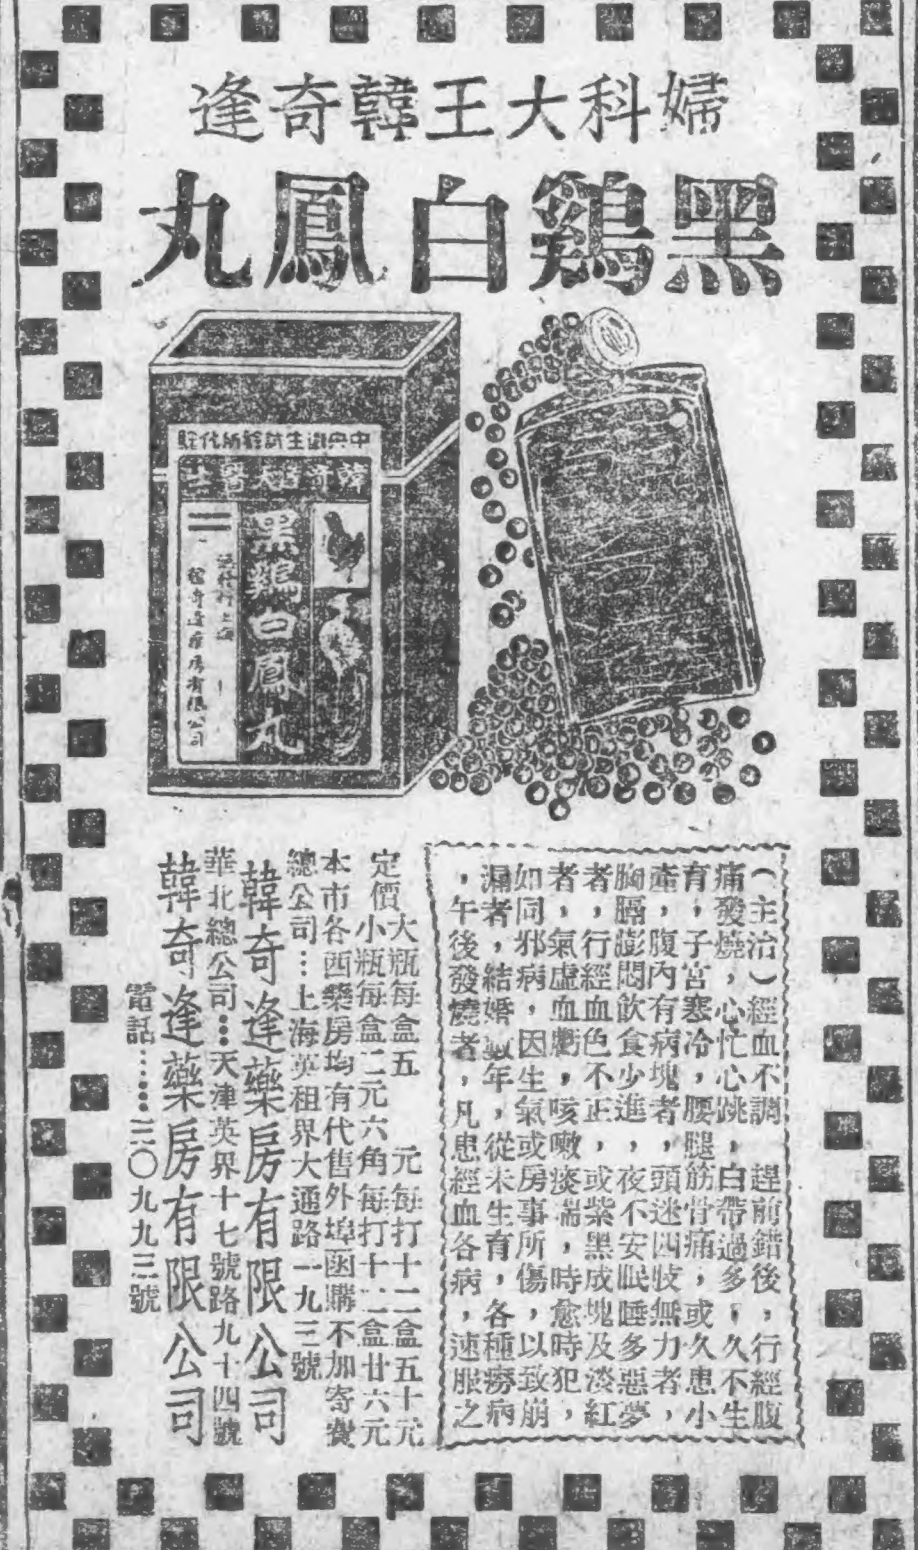 婦科大王韓奇逢
黑鷄白鳳丸
中央衛生試驗所化驗
韓奇逢大醫士
黑鷄白鳳丸
韓奇逢藥房有限公司
（主治）經血不調　趕前錯後，行經腹
痛發燒，心忙心跳，白帶過多，久不生
育，子宮寒冷，腰腿筋骨痛，或久患小
產，腹內有病塊者，頭迷四肢無力者，
胸膈膨悶飲食少進，夜不安眠睡多惡夢
者，行經血色不正，或紫黑成塊及淡紅
者，氣虛血虧，咳嗽痰喘，時愈時犯，
如同邪病，因生氣或房事所傷，以致崩
漏者，結婚數年，從未生育，各種癆病
，午後發燒者，凡患經血各病，速服之
定價
大瓶每盒五　　元每打十二盒五十元
小瓶每盒二元六角每打十二盒廿六元
本市各西藥房均有代售外埠函購不加寄費
總公司⋯上海英租界大通路一九三號
韓奇逢藥房有限公司
華北總公司⋯天津英界十七號路九十四號
韓奇逢藥房有限公司
電話⋯⋯三〇九九三號